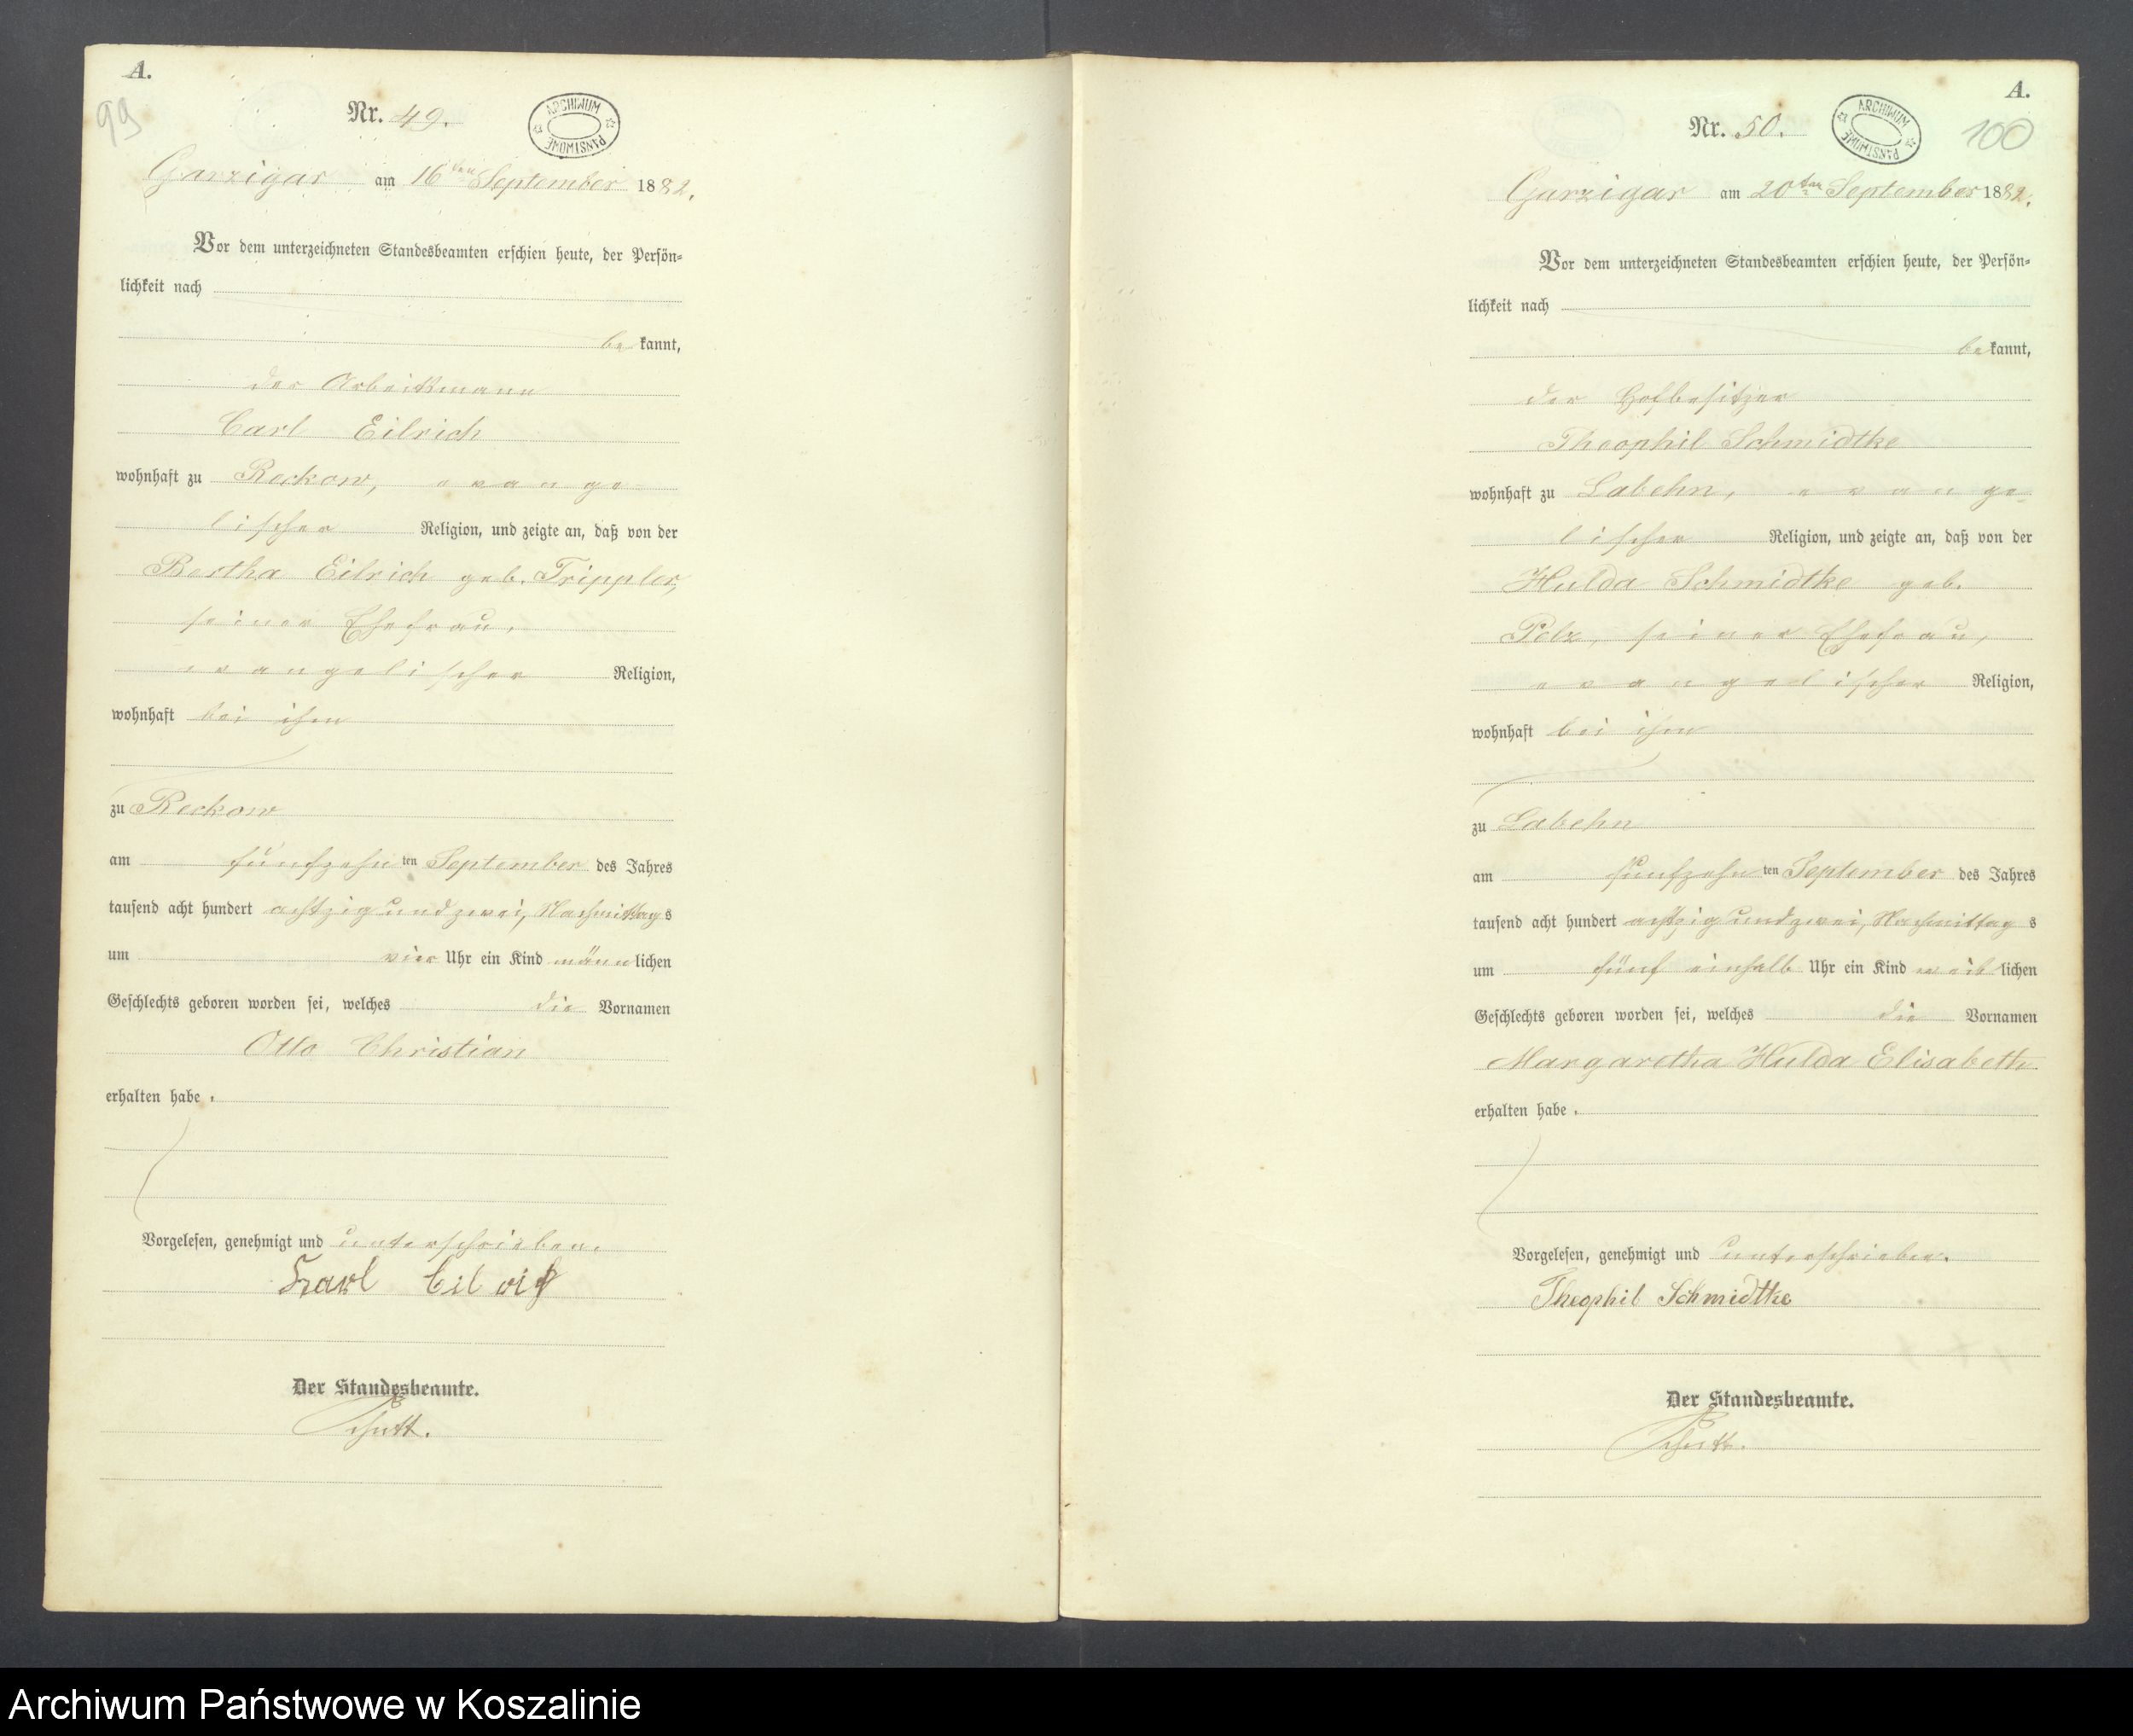 A.
99
Nr. 49.
ARCHIWUM PAŃSTWOWE
Garzigar am 16ten September 1882.
Vor dem unterzeichneten Standesbeamten erschien heute, der Persön-
lichkeit nach
bekannt,
der Arbeitsmann
Carl Eilrich
wohnhaft zu Reckow, evange-
lischer Religion, und zeigte an, daß von der
Bertha Eilrich geb. Trippler,
seiner Ehefrau,
evangelischer Religion,
wohnhaft bei ihm
zu Reckow
am fünfzehnten September des Jahres
tausend acht hundert achtzig und zwei, Nachmittags
um vier Uhr ein Kind männlichen
Geschlechts geboren worden sei, welches die Vornamen
Otto Christian
erhalten habe.
Vorgelesen, genehmigt und unterschrieben.
Karl Eilrich
Der Standesbeamte.
A.
Nr. 50.
ARCHIWUM PAŃSTWOWE
100
Garzigar am 20ten September 1882.
Vor dem unterzeichneten Standesbeamten erschien heute, der Persön-
lichkeit nach
bekannt,
der Hofbesitzer
Theophil Schmidtke
wohnhaft zu Labehn, evange-
lischer Religion, und zeigte an, daß von der
Hulda Schmidtke geb.
Pelz, seiner Ehefrau,
evangelischer Religion,
wohnhaft bei ihm
zu Labehn
am fünfzehnten September des Jahres
tausend acht hundert achtzig und zwei, Nachmittags
um fünf einhalb Uhr ein Kind weiblichen
Geschlechts geboren worden sei, welches die Vornamen
Margaretha Hulda Elisabeth
erhalten habe.
Vorgelesen, genehmigt und unterschrieben.
Theophil Schmidtke
Der Standesbeamte.
Archiwum Państwowe w Koszalinie